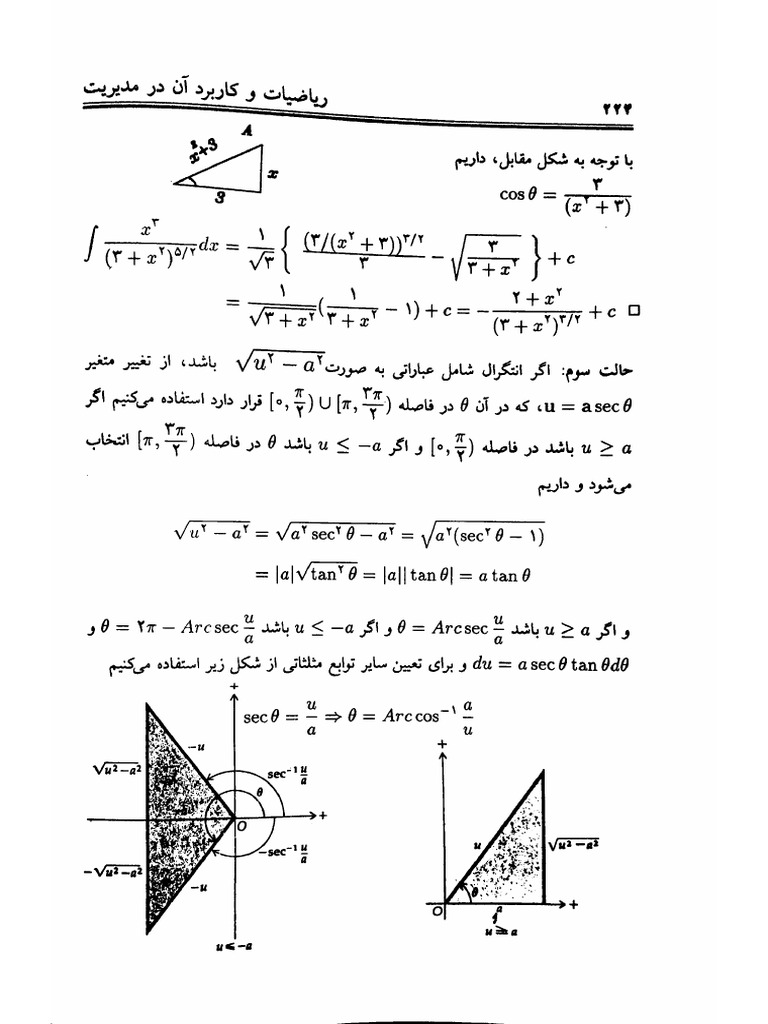 ریاضیات و کاربرد آن در مدیریت ۲۲۴
با توجه به شکل مقابل، داریم
cos θ = ۳/(x^۲ + ۳)
A
x^2+3
x
3
∫ x^۳/(۳ + x^۲)^{۵/۲} dx = ۱/√۳ { (۳/(x^۲ + ۳))^{۳/۲}/۳ − √(۳/(۳ + x^۲)) } + c
= ۱/√(۳ + x^۲) (۱/(۳ + x^۲) − ۱) + c = − (۲ + x^۲)/(۳ + x^۲)^{۳/۲} + c □
حالت سوم: اگر انتگرال شامل عباراتی به صورت √(u^۲ − a^۲) باشد، از تغییر متغیر
u = a sec θ، که در آن θ در فاصله [۰, π/۲) ∪ [π, ۳π/۲) قرار دارد استفاده می‌کنیم اگر
u ≥ a باشد در فاصله [۰, π/۲) و اگر u ≤ −a باشد θ در فاصله [π, ۳π/۲) انتخاب
می‌شود و داریم
√(u^۲ − a^۲) = √(a^۲ sec^۲ θ − a^۲) = √(a^۲(sec^۲ θ − ۱))
= |a|√(tan^۲ θ) = |a||tan θ| = a tan θ
و اگر u ≥ a باشد θ = Arc sec u/a و اگر u ≤ −a باشد θ = ۲π − Arc sec u/a و
du = a sec θ tan θdθ و برای تعیین سایر توابع مثلثاتی از شکل زیر استفاده می‌کنیم
sec θ = u/a ⇒ θ = Arc cos^{−۱} a/u
+
−u
√(u²−a²)
sec⁻¹ u/a
θ
O
+
−sec⁻¹ u/a
−√(u²−a²)
−u
u ≤ −a
+
u
√(u²−a²)
θ
O
a
+
u ≥ a